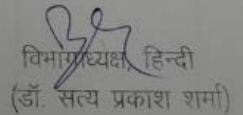 विभागाध्यक्ष, हिन्दी
(डॉ. सत्य प्रकाश शर्मा)